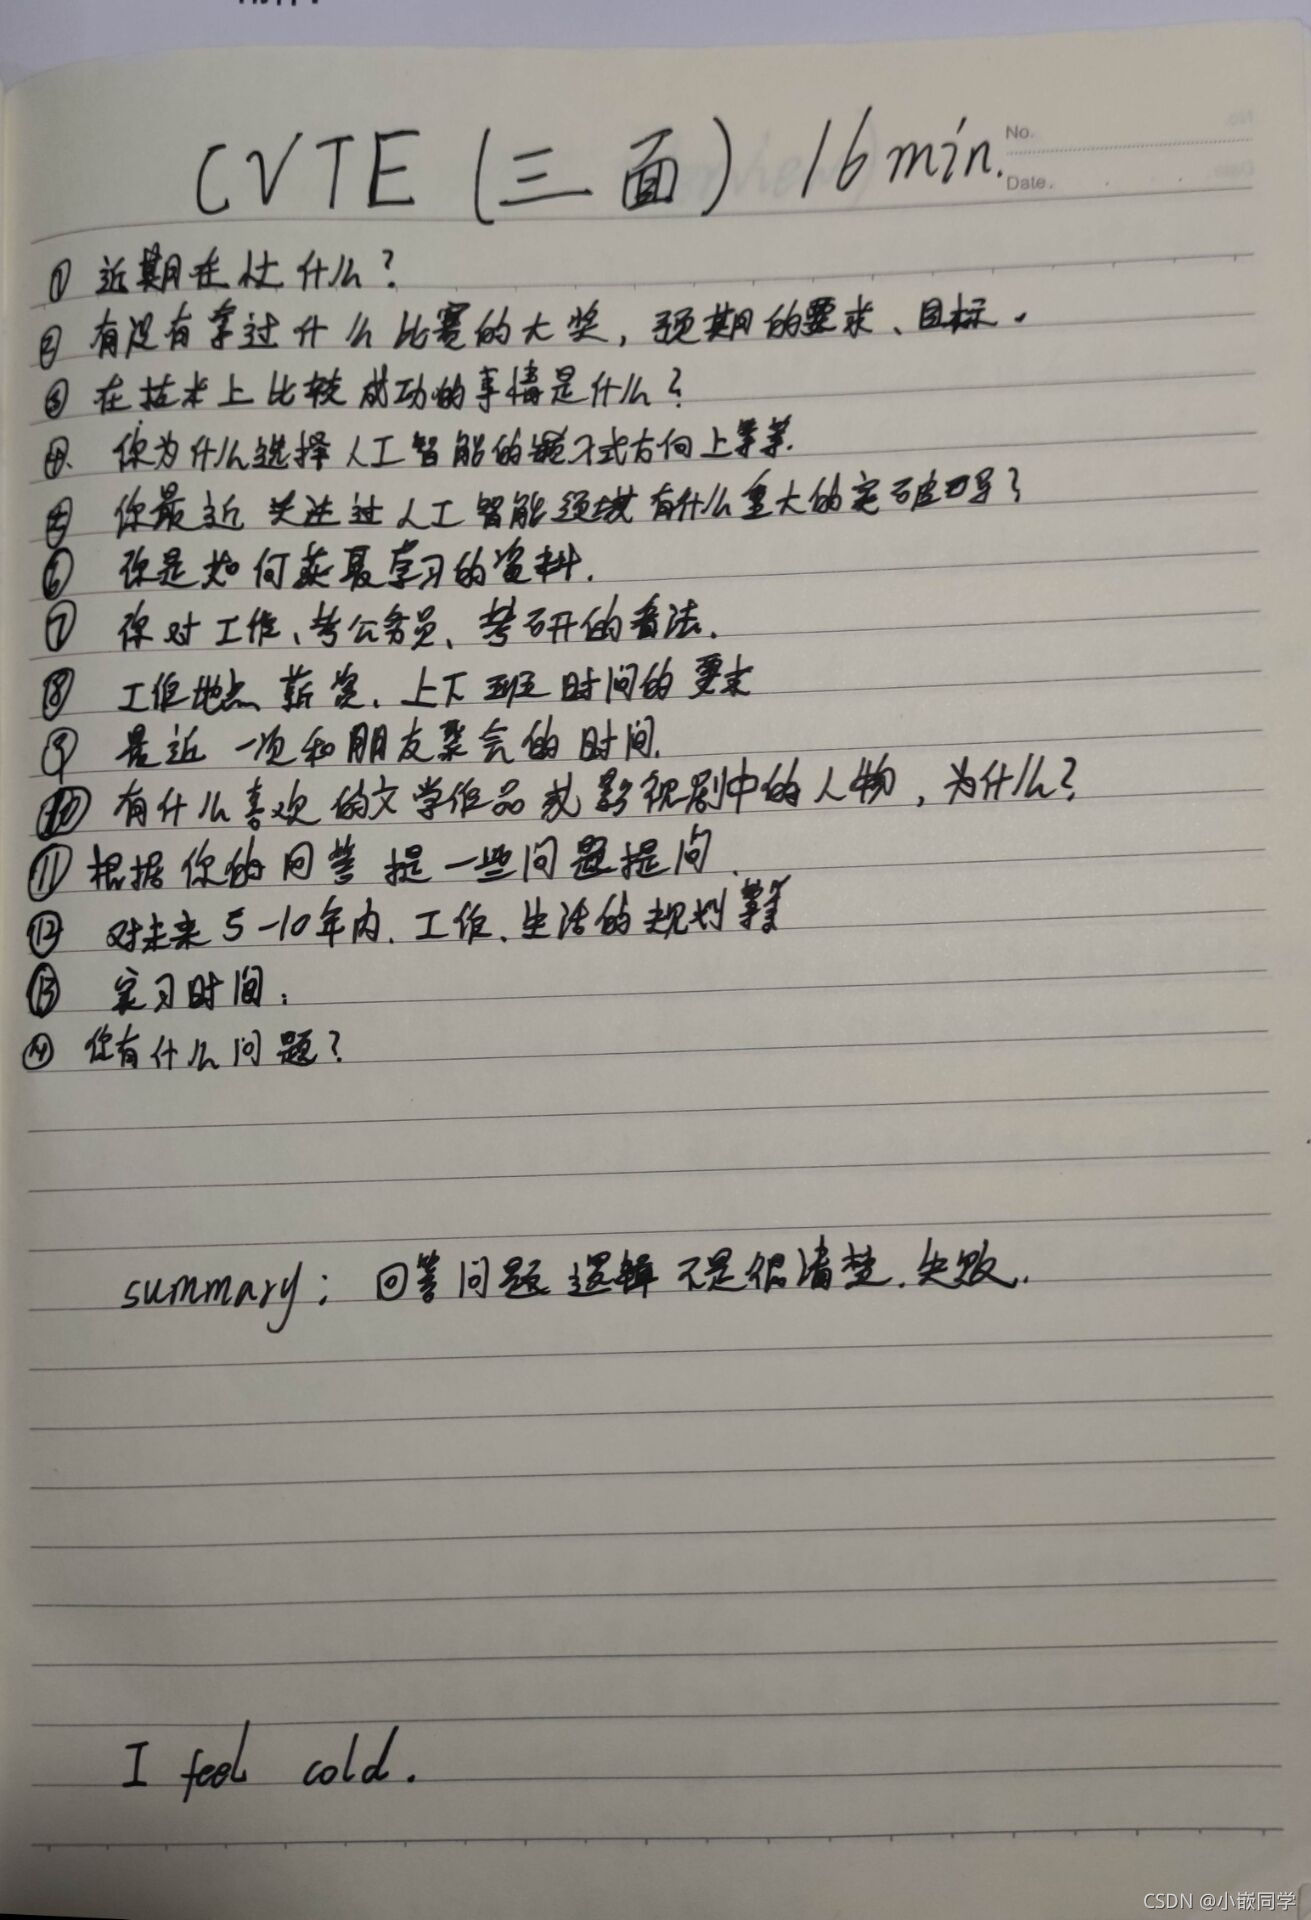 CVTE (三面) 16min.
No.
Date.
① 近期在忙什么?
② 有没有拿过什么比赛的大奖, 预期的要求、目标.
③ 在技术上比较成功的事情是什么?
④. 你为什么选择人工智能的嵌入式方向上等等.
⑤ 你最近关注过人工智能领域有什么重大的突破
⑥ 你是如何获取学习的资料.
⑦ 你对工作、考公务员、考研的看法.
⑧ 工作地点、薪资、上下班时间的要求
⑨ 最近一次和朋友聚会的时间.
⑩ 有什么喜欢的文学作品或影视剧中的人物, 为什么?
⑪ 根据你的回答提一些问题提问.
⑫ 对未来5-10年内、工作、生活的规划等
⑬ 实习时间:
⑭ 你有什么问题?
summary: 回答问题逻辑不是很清楚. 失败.
I feel cold.
CSDN @小嵌同学